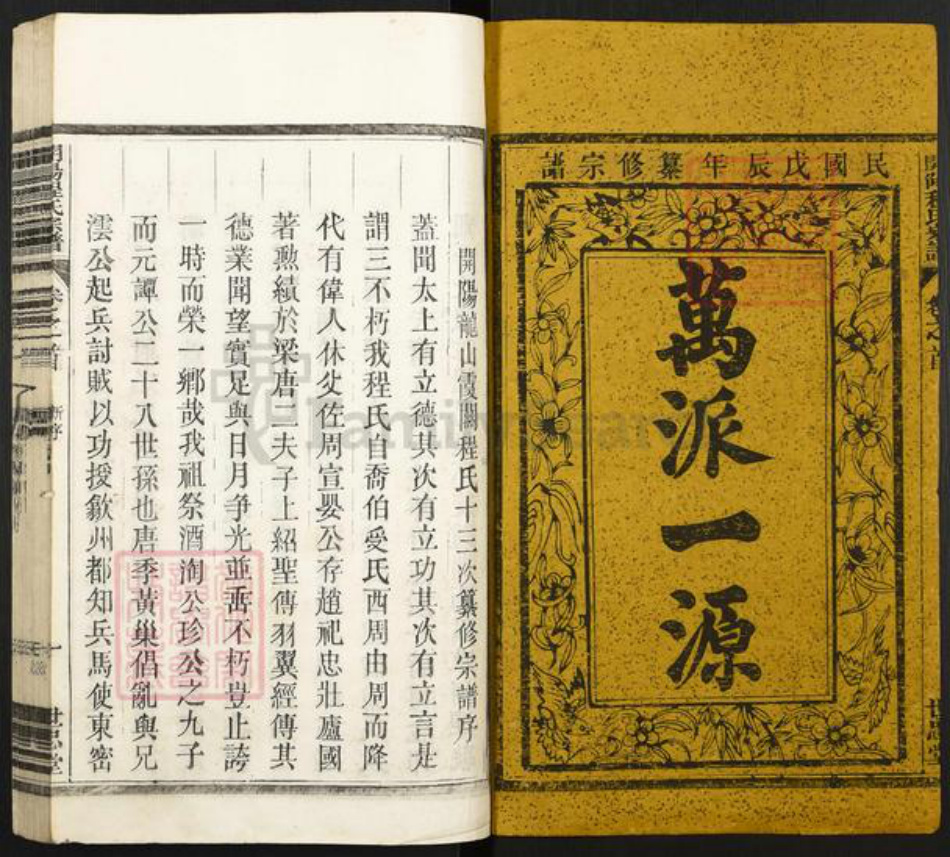 民國戊辰年纂修宗譜
萬派一源
世忠堂
開陽龍山霞關程氏十三次纂修宗譜序
蓋聞太上有立德其次有立功其次有立言是
謂三不朽我程氏自喬伯受氏西周由周而降
代有偉人休父佐周宣嬰公存趙祀忠壯廬國
著勲績於梁唐二夫子上紹聖傳羽翼經傳其
德業聞望實足與日月爭光並壽不朽豈止誇
一時而榮一鄉哉我祖祭酒淘公珍公之九子
而元譚公二十八世孫也唐季黃巢倡亂與兄
澐公起兵討賊以功授歙州都知兵馬使東密
世忠堂